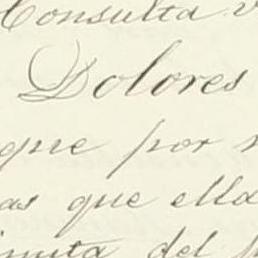 Consulta
Dolores
que por
as que ella
del